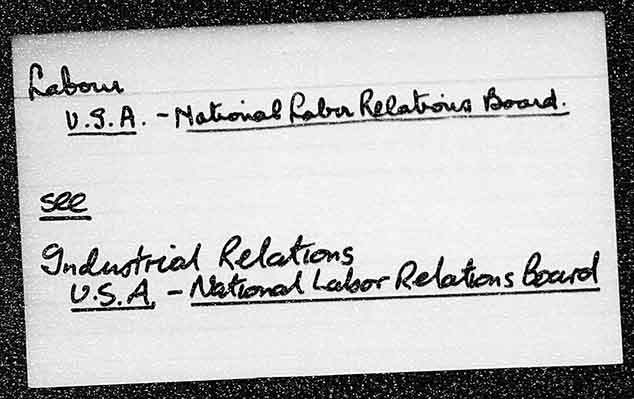 Labour
U.S.A. - National Labor Relations Board.
see
Industrial Relations
U.S.A. - National Labor Relations Board